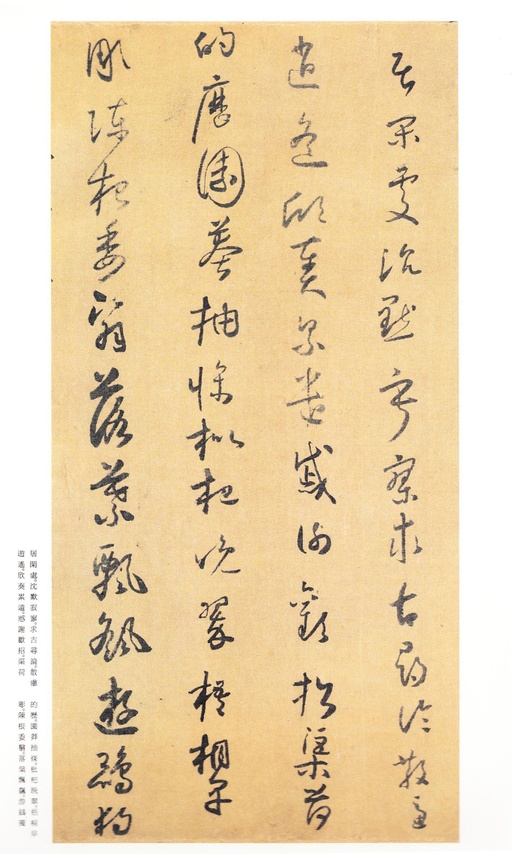 居閑處沉默寂寥求古尋論散慮
逍遙欣奏累遣慼謝歡招渠荷
的歷園莽抽條枇杷晚翠梧桐早
彫陳根委翳落葉飄颻遊鵾獨
居閑處，沈默寂寥，求古尋論，散慮
逍遙，欣奏累遣，慼謝歡招，渠荷
的歷，園莽抽條，枇杷晚翠，梧桐早
彫，陳根委翳，落葉飄颻，游鵾獨